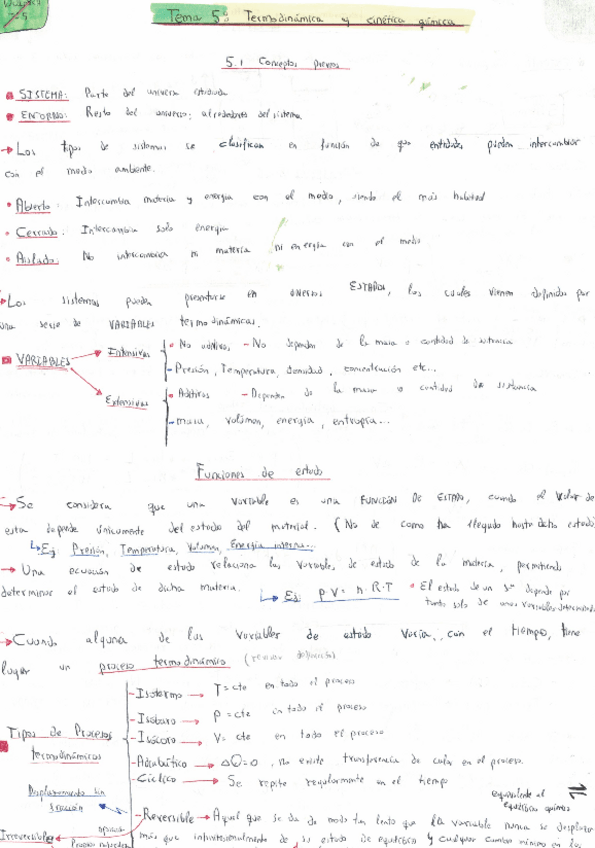 Tema 5: Termodinámica y cinética química
5.1 Conceptos previos
SISTEMA: Parte del universo estudiada
ENTORNO: Resto del universo; alrededores del sistema
→ Los tipos de sistemas se clasifican en función de que entidades pueden intercambiar
con el medio ambiente.
• Abierto: Intercambia materia y energía con el medio, siendo el más habitual
• Cerrado: Intercambia solo energía
• Aislado: No intercambia ni materia ni energía con el medio
→ Los sistemas pueden presentarse en diversos ESTADOS, los cuales vienen definidos por
una serie de VARIABLES termodinámicas.
VARIABLES
Intensivas
• No aditivas, - No dependen de la masa o cantidad de sustancia
- Presión, Temperatura, densidad, concentración etc...
Extensivas
• Aditivas - Dependen de la masa o cantidad de sustancia
- masa, volúmen, energía, entropía...
Funciones de estado
→ Se considera que una variable es una FUNCIÓN DE ESTADO, cuando el valor de
esta depende únicamente del estado del material. (No de como ha llegado hasta dicho estado)
↳ Ej: Presión, Temperatura, Volumen, Energía interna...
→ Una ecuación de estado relaciona las variables de estado de la materia, permitiendo
determinar el estado de dicha materia. ↳ Ej: P V = n·R·T • El estado de un depende por
tanto solo de unas variables determinadas
→ Cuando alguna de las variables de estado varía, con el tiempo, tiene
lugar un proceso termodinámico
Tipos de Procesos
termodinámicos
- Isotermo → T = cte en todo el proceso
- Isóbaro → P = cte in todo el proceso
- Isócoro → V = cte en todo el proceso
- Adiabático → ΔQ = 0, no existe transferencia de calor en el proceso.
- Cíclico → Se repite regularmente en el tiempo
Desplazamiento sin
fracción
equivalente al
equilibrio químico
- Reversible → Aquel que se da de modo tan lento que la variable nunca se desplaza
Irreversible
más que infinitesimalmente de su estado de equilibrio y cualquier cambio mínimo en las